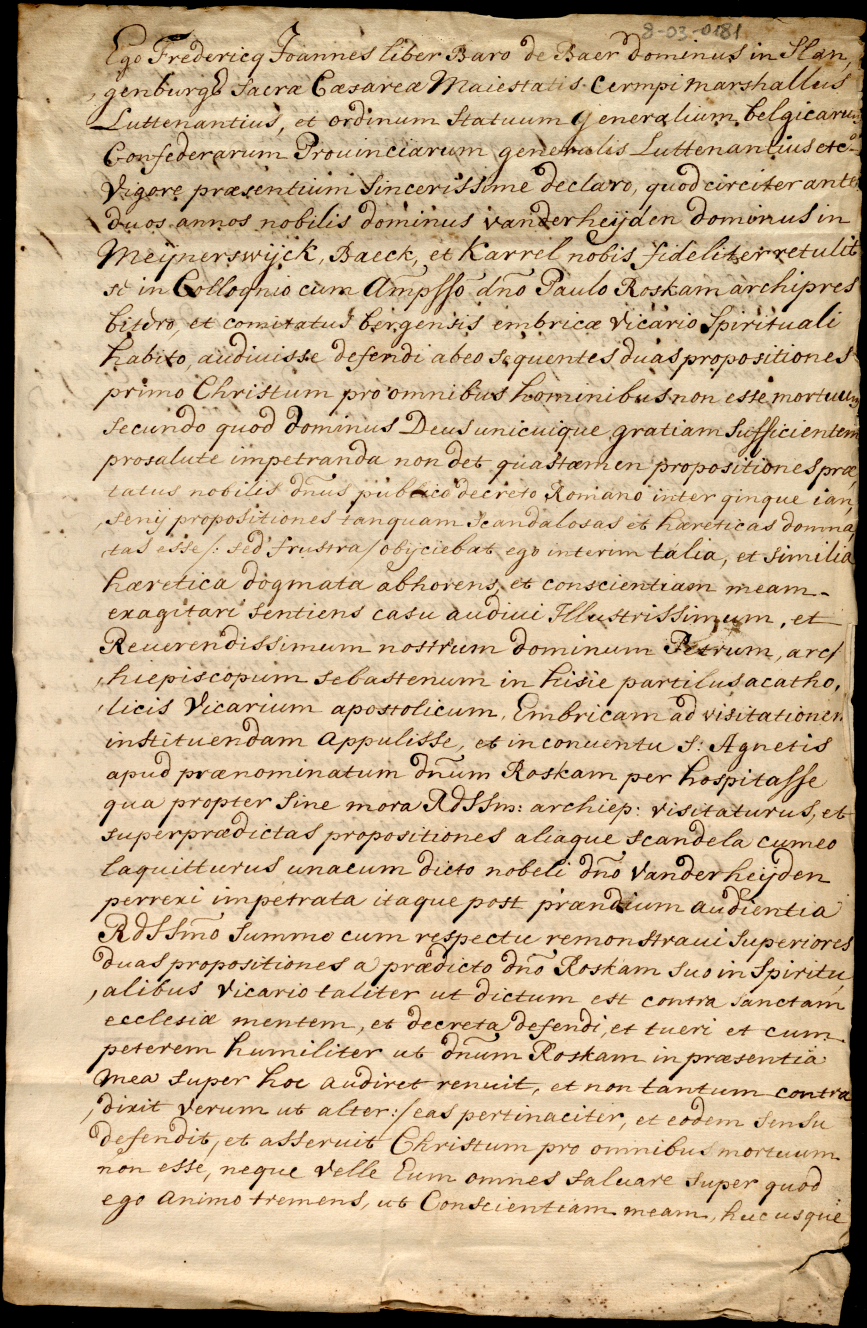 8-03-0181
Ego Fredericq Joannes liber Baro de Baer dominus in Slan,
,genburgh Sacræ Cæsareæ Maiestatis Cempi marshallus
Luttenantius, et ordinum Statuum generalium belgicarum
Confederarum Prouinciarum generalis Luttenantius etc:
Vigore præsentium Sincerissime declaro, quod circiter ante
duos annos nobilis dominus vanderheijden dominus in
Meijnerswijck, Baeck, et Karrel nobis fideliter retulit
se in Colloqnio cum Ampsso dño Paulo Roskam archipres
bitero, et comitatus bergensis embricæ Vicario Spirituali
habito, audiuisse defendi ab eo sequentes duas propositiones
primo Christum pro omnibus hominibus non esse mortuum
secundo quod dominus Deus unicuique gratiam Sufficientem
pro salute impetranda non det quas tamen propositiones præ,
tatus nobilis dñus publico decreto Romano inter qinque ian,
,senij propositiones tanquam scandalosas et hæreticas domna,
tas esse /: sed frustra / obijciebat ego interim talia, et similia
hæretica dogmata abhorens, et conscientiam meam-
exagitari sentiens casu audiui Illustrissimum, et
Reuerendissimum nostrum dominum Petrum, arc/
,hiepiscopum sebastenum in hisie partilus acatho,
,licis Vicarium apostolicum, Embricam ad visitationem
instituendam Appulisse, et in conuentu S: Agnetis
apud prænominatum dñum Roskam per hospitasse
qua propter Sine mora RdSSm: archiep: visitaturus, et
superprædictas propositiones aliaque scandela cum eo
laquitturus unacum dicto nobeli dño Vanderheijden
perrexi impetrata itaque post prændium audientia
RdSSmo Summo cum respectu remonstraui Superiores
duas propositiones a prædicto dño Roskam suo in Spiritu,
,alibus Vicario taliter ut dictum est contra sanctam
ecclesiæ mentem, et decreta defendi, et tueri et cum
peterem humiliter ut dñum Roskam in præsentia
mea super hoc audiret renuit, et non tantum contra
,dixit Verum ut alter:/ eas pertinaciter, et eodem sensu
defendit, et asseruit Christum pro omnibus mortuum
non esse, neque Velle Eum omnes saluare super quod
ego Animo tremens, ut Conscientiam meam, huc usque